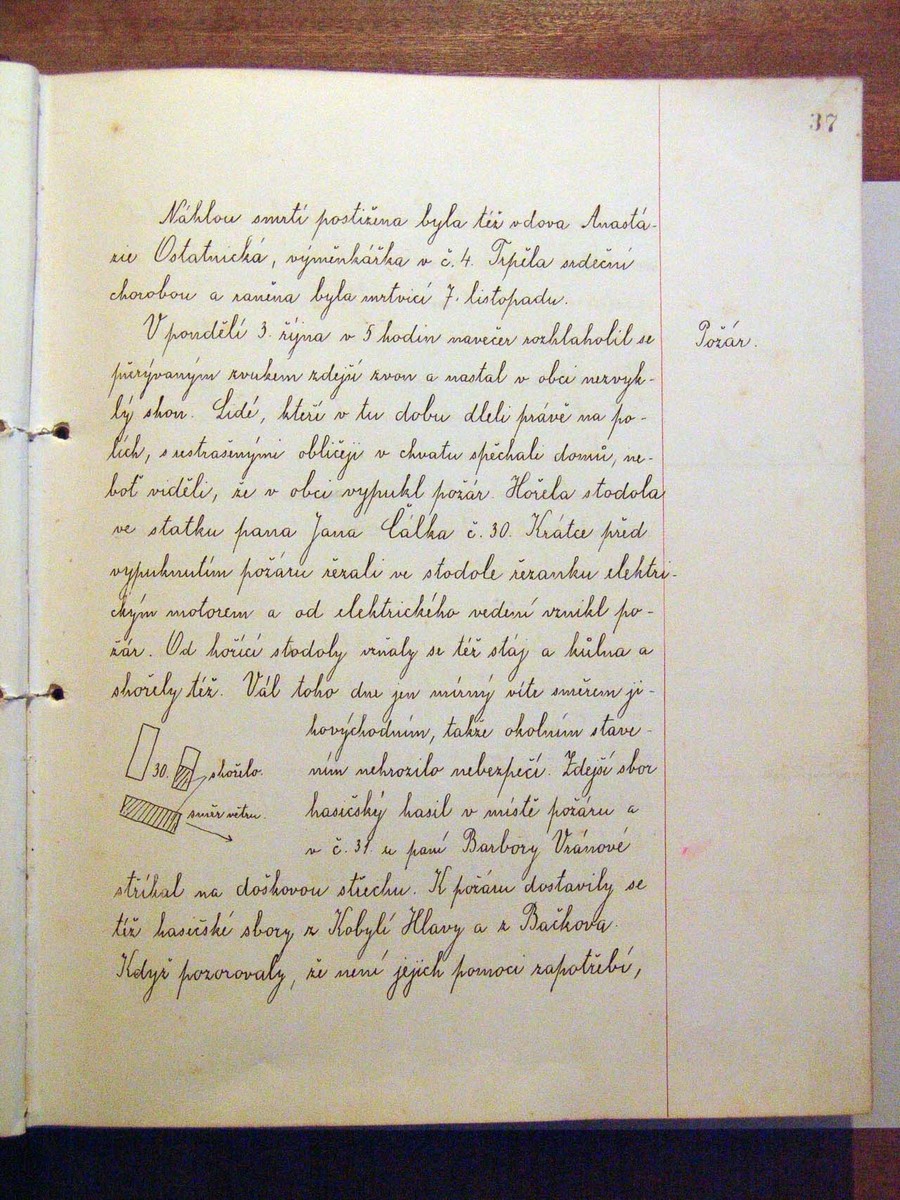 37
Náhlou smrtí postižena byla též vdova Anastá-
zie Ostatnická, výměnkářka v č. 4. Trpěla srdeční
chorobou a raněna byla mrtvicí 7. listopadu.
V pondělí 3. října v 5 hodin navečer rozhlaholil se
Požár.
přerývaným zvukem zdejší zvon a nastal v obci nezvyk-
lý shon. Lidé, kteří v tu dobu dleli právě na po-
lích, s ustrašenými obličeji v chvatu spěchali domů, ne-
boť viděli, že v obci vypukl požár. Hořela stodola
ve statku pana Jana Čálka č. 30. Krátce před
vypuknutím požáru řezali ve stodole řezanku elektri-
ckým motorem a od elektrického vedení vznikl po-
žár. Od hořící stodoly vzňaly se též stáj a kůlna a
shořely též. Vál toho dne jen mírný vítr směrem ji-
hovýchodním, takže okolním stave-
ním nehrozilo nebezpečí. Zdejší sbor
30. shořelo.
hasičský hasil v místě požáru a
směr větru.
v č. 31. u paní Barbory Vránové
stříkal na doškovou střechu. K požáru dostavily se
též hasičské sbory z Kobylí Hlavy a z Bačkova.
Když pozorovaly, že není jejich pomoci zapotřebí,